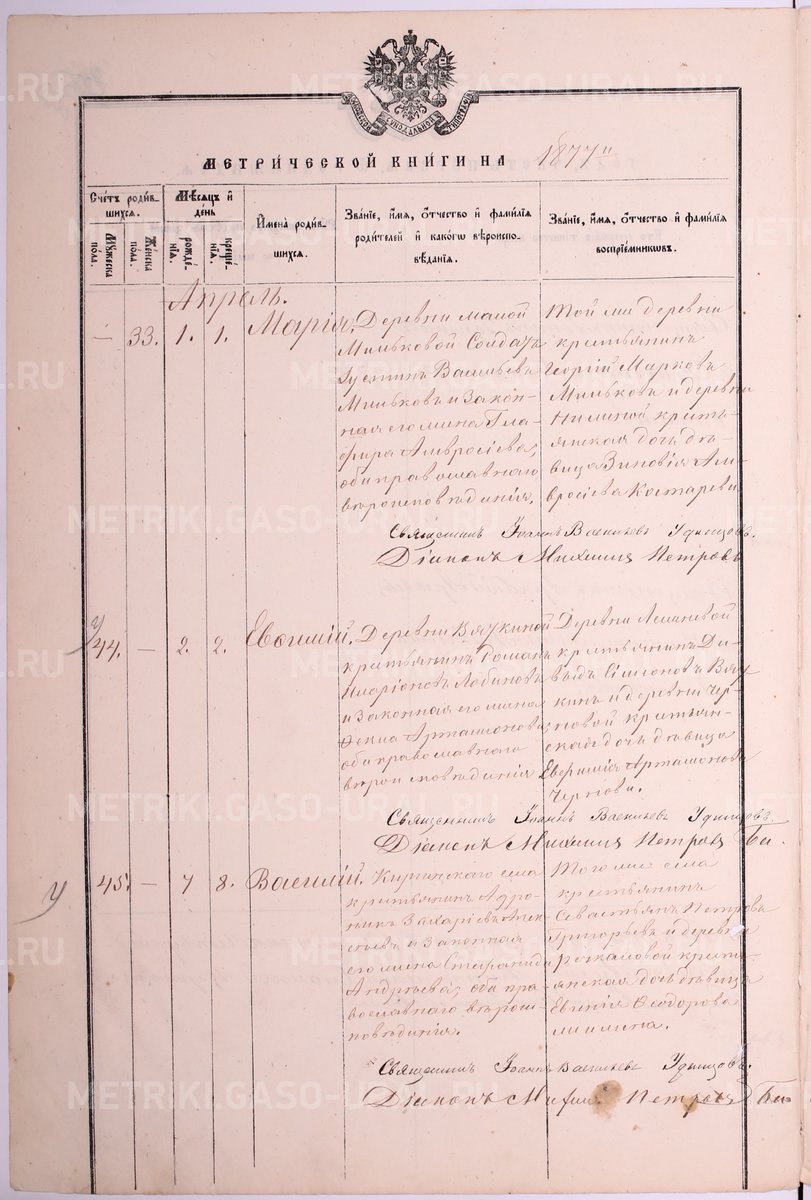 СИНОДАЛЬНОЙ ТИПОГРАФІИ
МЕТРИЧЕСКОЙ КНИГИ НА 1877 г.
Счетъ родившихся.
Мужеска пола.
Женска пола.
Мѣсяцъ и день
рожденія.
крещенія.
Имена родившихся.
Званіе, имя, отчество и фамилія родителей и какого вѣроисповѣданія.
Званіе, имя, отчество и фамилія воспріемниковъ.
Апрѣль.
— 33. 1. 1. Марія.
Деревни малой
Мильковой Солдатъ
Іустинъ Васильевъ
Мильковъ и закон-
ная его жена Гла-
фира Амвросіева,
оба православнаго
вѣроисповѣданія.
Той же деревни
крестьянинъ
Георгій Марковъ
Мильковъ и деревни
кресть-
янская дочь дѣ-
вица Зиновія Ам-
вросіева Костарева
Священникъ Іоаннъ Васильевъ Удинцовъ.
Діаконъ Михаилъ Петровъ
44. — 2. 2. Евѳимій.
Деревни Вяткиной
крестьянинъ Романъ
Иларіоновъ Лобановъ
и законная его жена
Ѳекла Артамонова,
оба православнаго
вѣроисповѣданія
Деревни
крестьянинъ Да-
выдъ Симеоновъ Вят-
кинъ и деревни Чер-
новой крестьян-
ская дочь дѣвица
Артамонова
Чернова.
Священникъ Іоаннъ Васильевъ Удинцовъ.
Діаконъ Михаилъ Петровъ
45. — 7 8. Василій.
Киргинскаго села
крестьянинъ Адро-
никъ Захаріевъ
и законная
его жена Стефанида
Андреева; оба пра-
вославнаго вѣроис-
повѣданія.
Того же села
крестьянинъ
Севастьянъ Петровъ
Григорьевъ и деревни
кресть-
янская дочь дѣвица
Евгенія Ѳеодорова
Священникъ Іоаннъ Васильевъ Удинцовъ.
Діаконъ Михаилъ Петровъ
METRIKI.GASO-URAL.RU